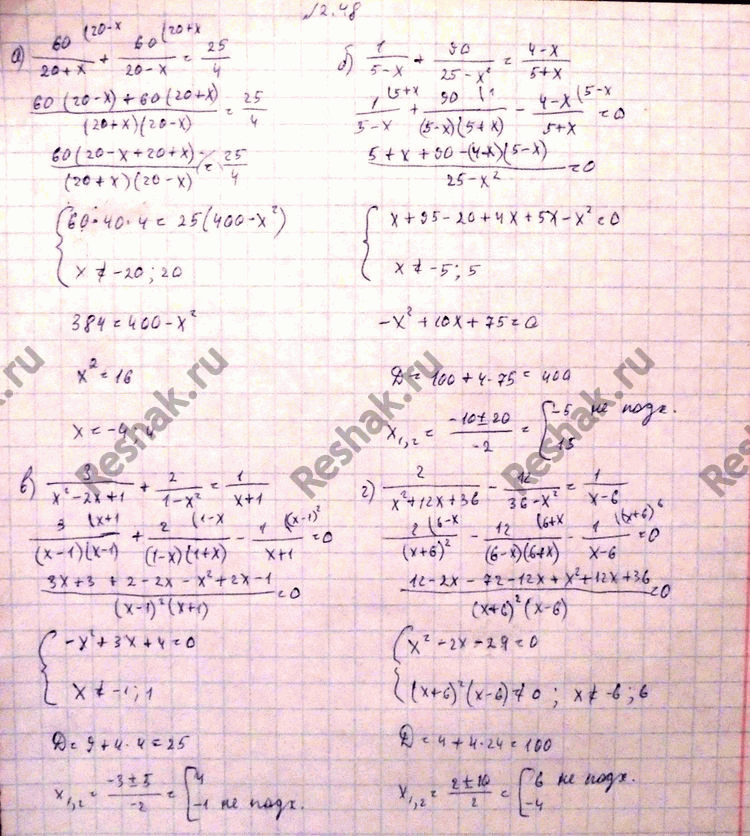 №2.48
а) 60(20-x / 20+x + 60(20+x / 20-x = 25/4
60(20-x)+60(20+x) / (20+x)(20-x) = 25/4
60(20-x+20+x) / (20+x)(20-x) = 25/4
{ 60·40·4 = 25(400-x²)
x ≠ -20; 20
384 = 400-x²
x² = 16
x = -4; 4
б) 1/5-x + 90/25-x² = 4-x/5+x
1(5+x / 5-x + 90(1 / (5-x)(5+x) - 4-x(5-x / 5+x = 0
5+x+90-(4-x)(5-x) / 25-x² = 0
{ x+95-20+4x+5x-x² = 0
x ≠ -5; 5
-x²+10x+75 = 0
D = 100+4·75 = 400
x₁,₂ = -10±20 / -2 = [ -5 не подх.
15
в) 3/x²-2x+1 + 2/1-x² = 1/x+1
3(x+1 / (x-1)(x-1) + 2(1-x / (1-x)(1+x) - 1((x-1)² / x+1 = 0
3x+3+2-2x-x²+2x-1 / (x-1)²(x+1) = 0
{ -x²+3x+4 = 0
x ≠ -1; 1
D = 9+4·4 = 25
x₁,₂ = -3±5 / -2 = [ 4
-1 не подх.
г) 2/x²+12x+36 - 12/36-x² = 1/x-6
2(6-x / (x+6)² - 12(6+x / (6-x)(6+x) - 1((x+6)⁶ / x-6 = 0
12-2x-72-12x+x²+12x+36 / (x+6)²(x-6) = 0
{ x²-2x-24 = 0
(x+6)²(x-6) ≠ 0; x ≠ -6; 6
D = 4+4·24 = 100
x₁,₂ = 2±10 / 2 = [ 6 не подх.
-4
Reshak.ru
Reshak.ru
Reshak.ru